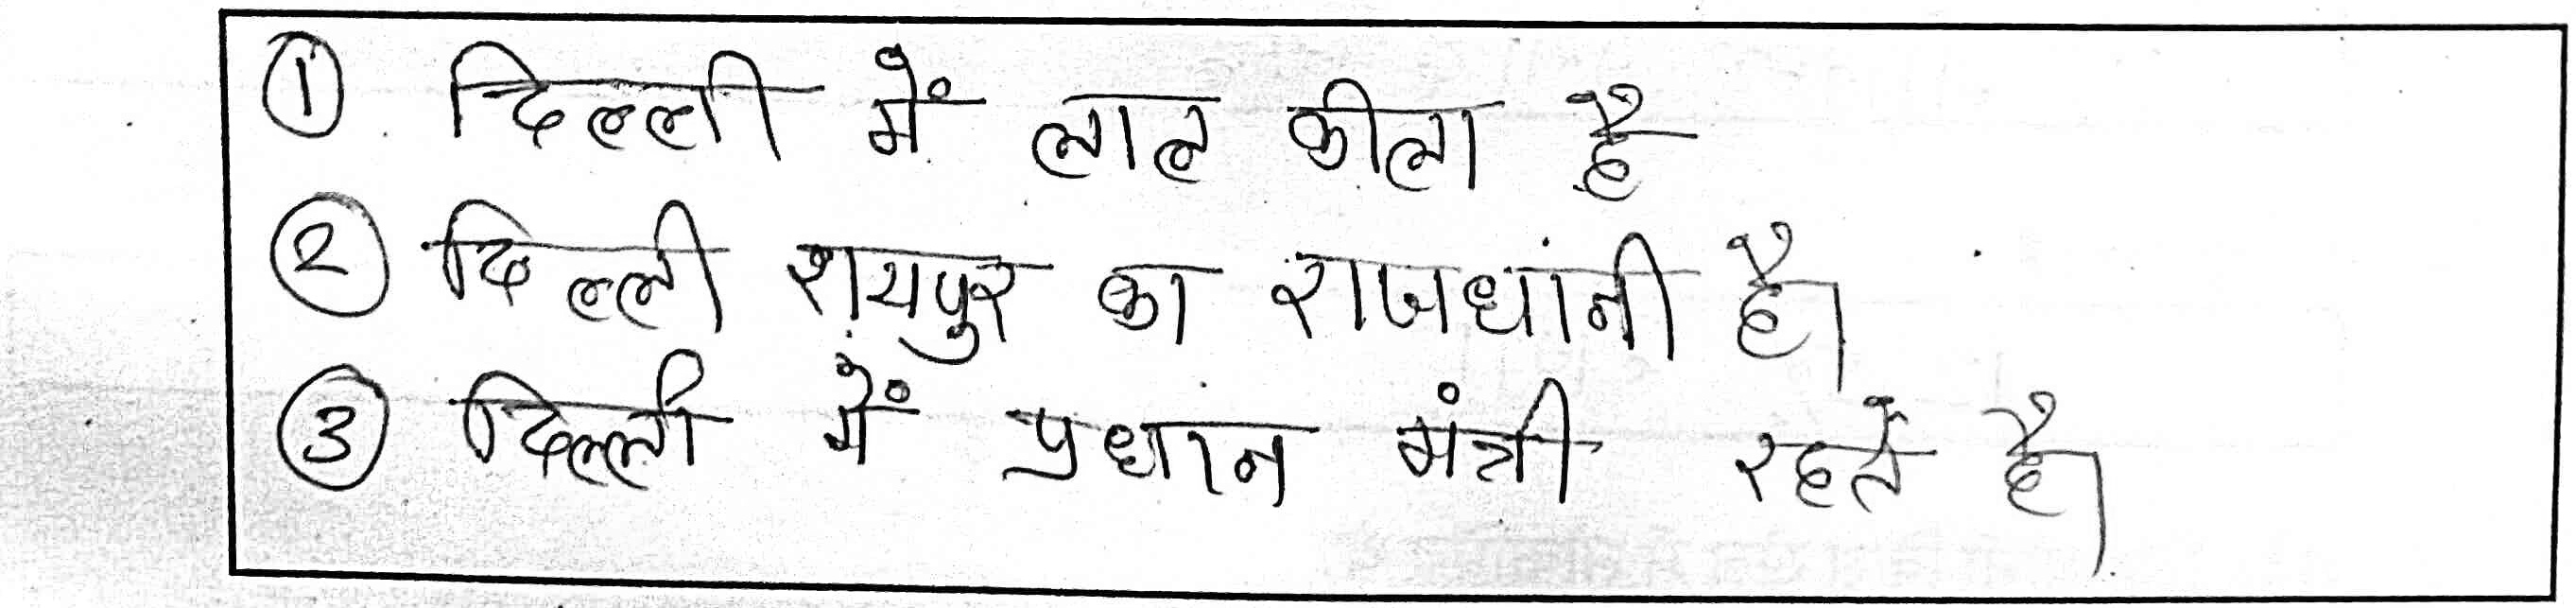 ① दिल्ली में लाल कीला है
② दिल्ली रायपुर का राजधांनी है।
③ दिल्ली में प्रधान मंत्री रहते है।